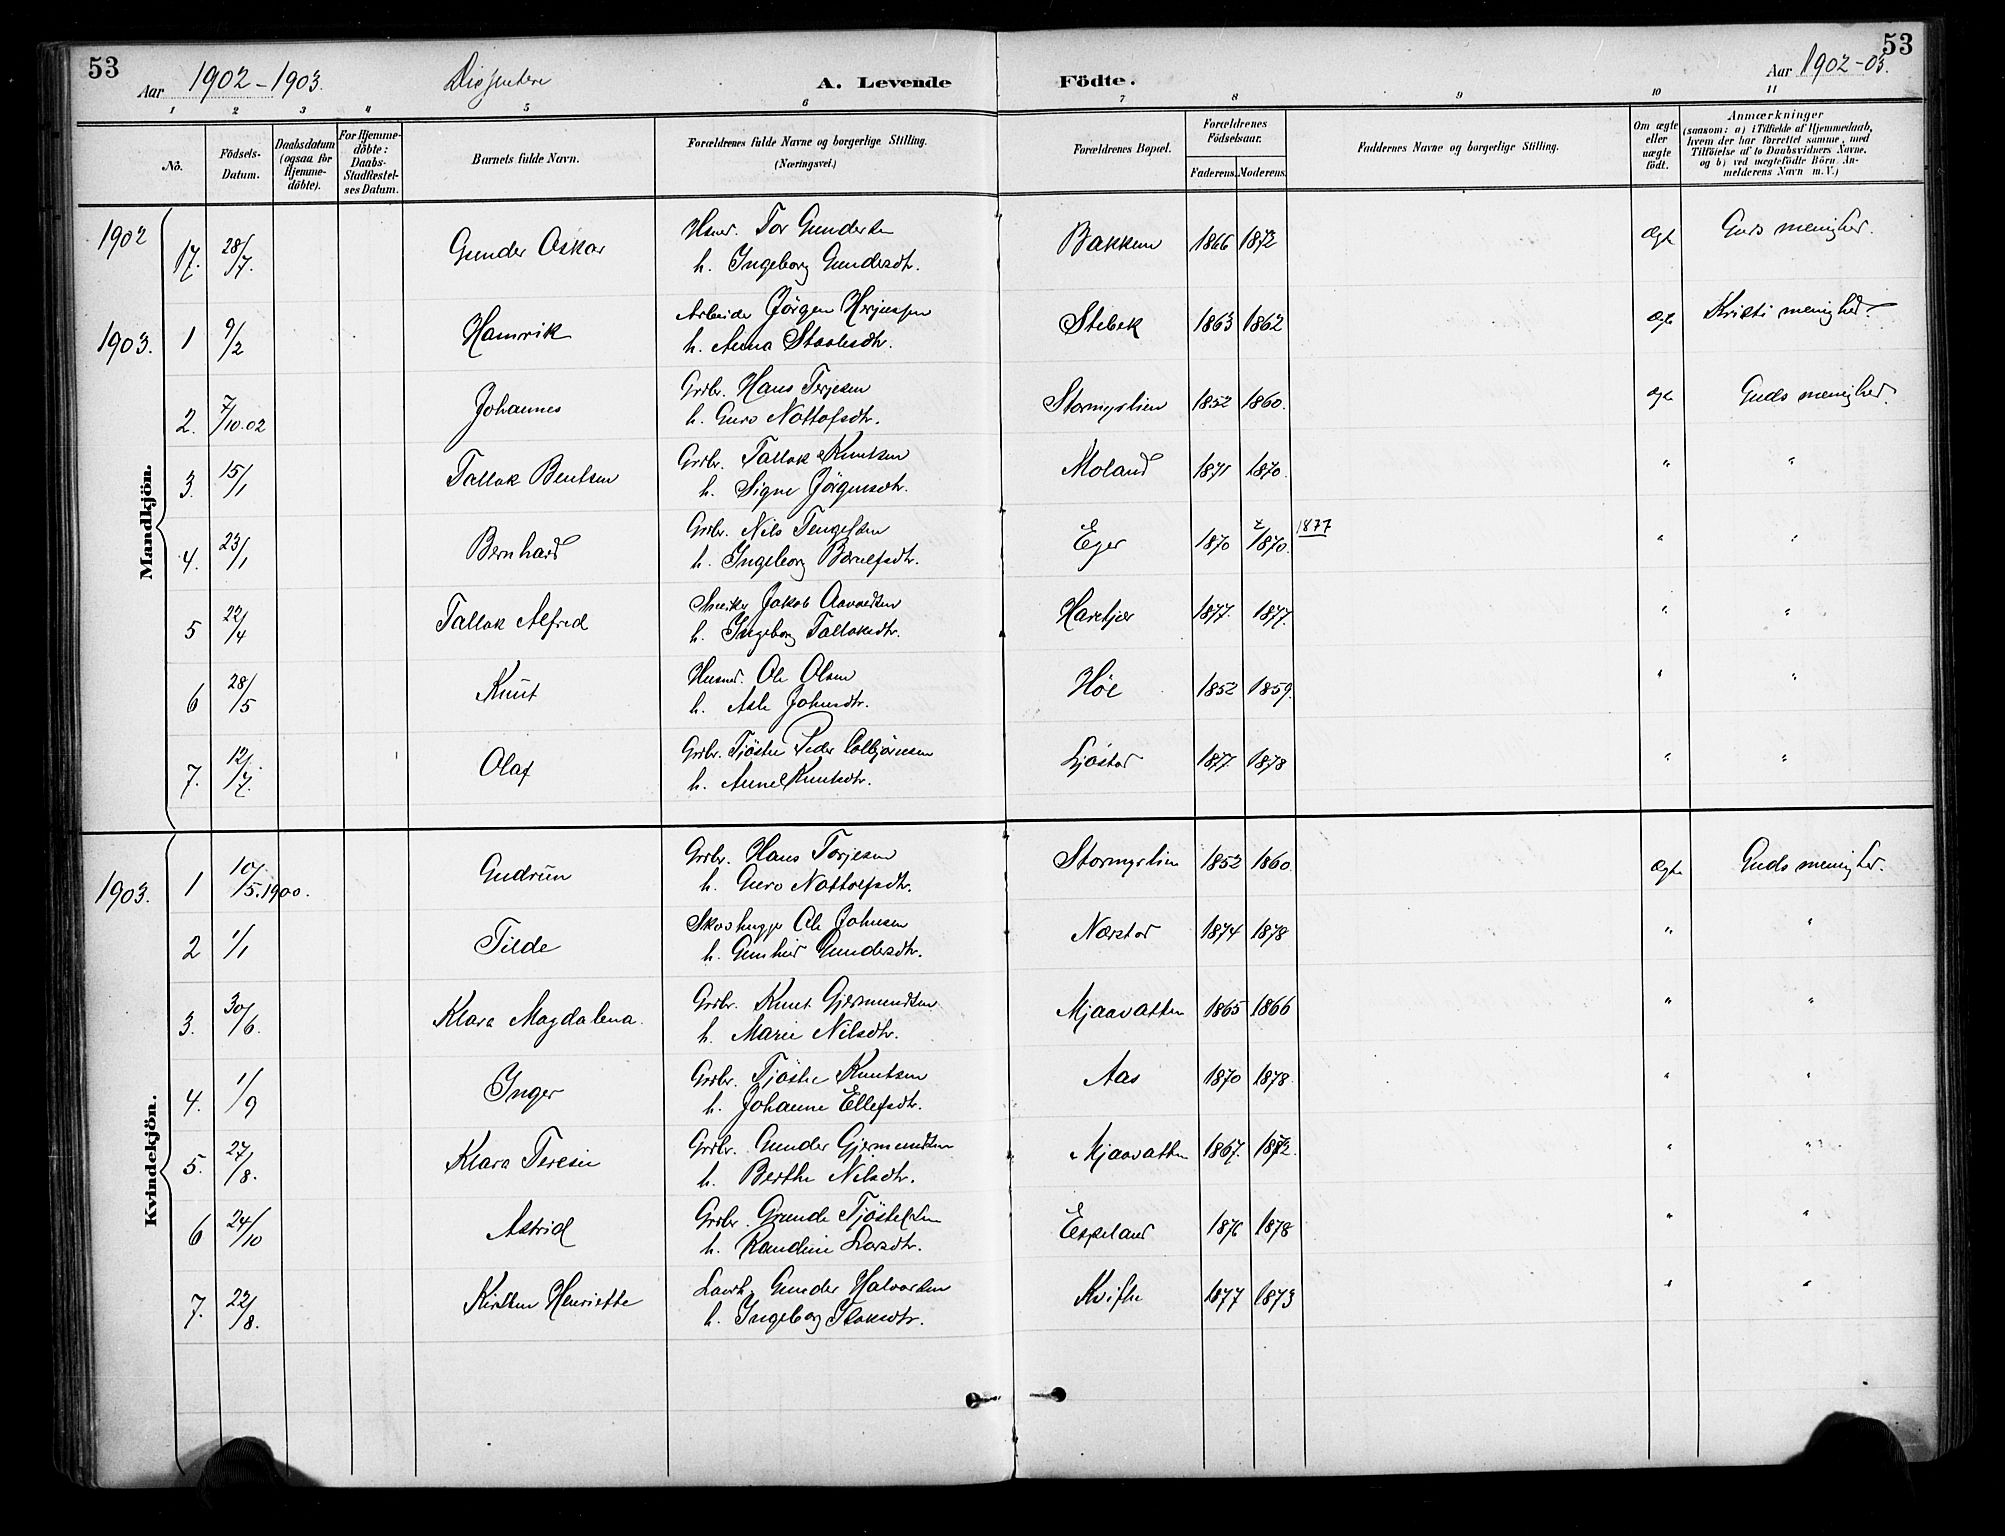 53 Aar 1902-1903. Dissentere A. Levende Födte. Aar 1902-03. 53
1 2 3 4 5 6 7 8 9 10 11
No. Födsels-Datum. Daabsdatum (ogsaa for Hjemme-döbte). For Hjemme-döbte: Daabs-Stadfæstel-ses Datum. Barnets fulde Navn. Forældrenes fulde Navne og borgerlige Stilling. (Næringsvei.) Forældrenes Bopæl. Forældrenes Födselsaar. Faderens. Moderens. Faddernes Navne og borgerlige Stilling. Om ægte eller uægte födt. Anmærkninger (saasom: a) i Tilfælde af Hjemmedaab, hvem der har forrettet samme, med Tilföielse af to Daabsvidners Navne, og b) ved uægtefödte Börn Anmelderens Navn m. V.)
Mandkjön.
1902 17. 28/7. Gunder Oskar Husmd. Tor Gundersen Bakken 1866 1872 Ægte Guds menighed.
h. Ingeborg Gundersdtr.
1903. 1 9/2 Hamrik Arbeider Jörgen Stebek 1863 1862 Ægte Kristi menighed
h. Anna
2. 7/10.02 Johannes Grbr. Hans Terjesen Stormyrlien 1852 1860. Ægte Guds menighed.
h. Guro Nottolfsdtr.
3. 15/1 Tallak Bentsen Grbr. Tallak Knutsen Moland 1871 1870. " "
h. Signe Jörgensdtr.
4. 23/1 Bernhard Grbr. Nils Tengelsen Eger 1870 1870. 1877 " "
h. Ingeborg
5 22/4 Tallak Alfred Jakob Aavoldsen 1877. 1877. " "
h. Ingeborg Tallaksdtr.
6 28/5 Knut Husmd. Ole Olsen Höe 1852 1859. " "
h. Asle Johnsdtr.
7. 12/7. Olaf Grbr. Tjöstel Peder Colbjörnsen Ljöstad 1877. 1878 " "
h. Anne Knutsdtr.
Kvindekjön.
1903. 1 10/5.1900. Gudrun Grbr. Hans Torjesen Stormyrlien 1852 1860. Ægte Guds menighed.
h. Guro Nottolfsdtr.
2 1/1 Tilde Skovhugger Ole Johnsen Nærstad 1874 1878 " "
h. Gunhild Gundersdtr.
3. 30/6. Klara Magdalena. Grbr. Knut Gjermundsen Mjaavatten 1865 1866 " "
h. Marie Nilsdtr.
4. 1/9 Inger Grbr. Tjöstel Knutsen Aas 1870 1878. " "
h. Johanne Ellefsdtr.
5. 27/8. Klara Teresie Grbr. Gunder Gjermundsen Mjaavatten 1867. 1872. " "
h. Berthe Nilsdtr.
6 24/10 Astrid Grbr. Grunde Tjöstelsen Espeland 1876 1878 " "
h. Randine Larsdtr.
7. 22/8. Kirsten Henriette Gunder Halvorsen Kvifte 1877 1873 " "
h. Ingeborg